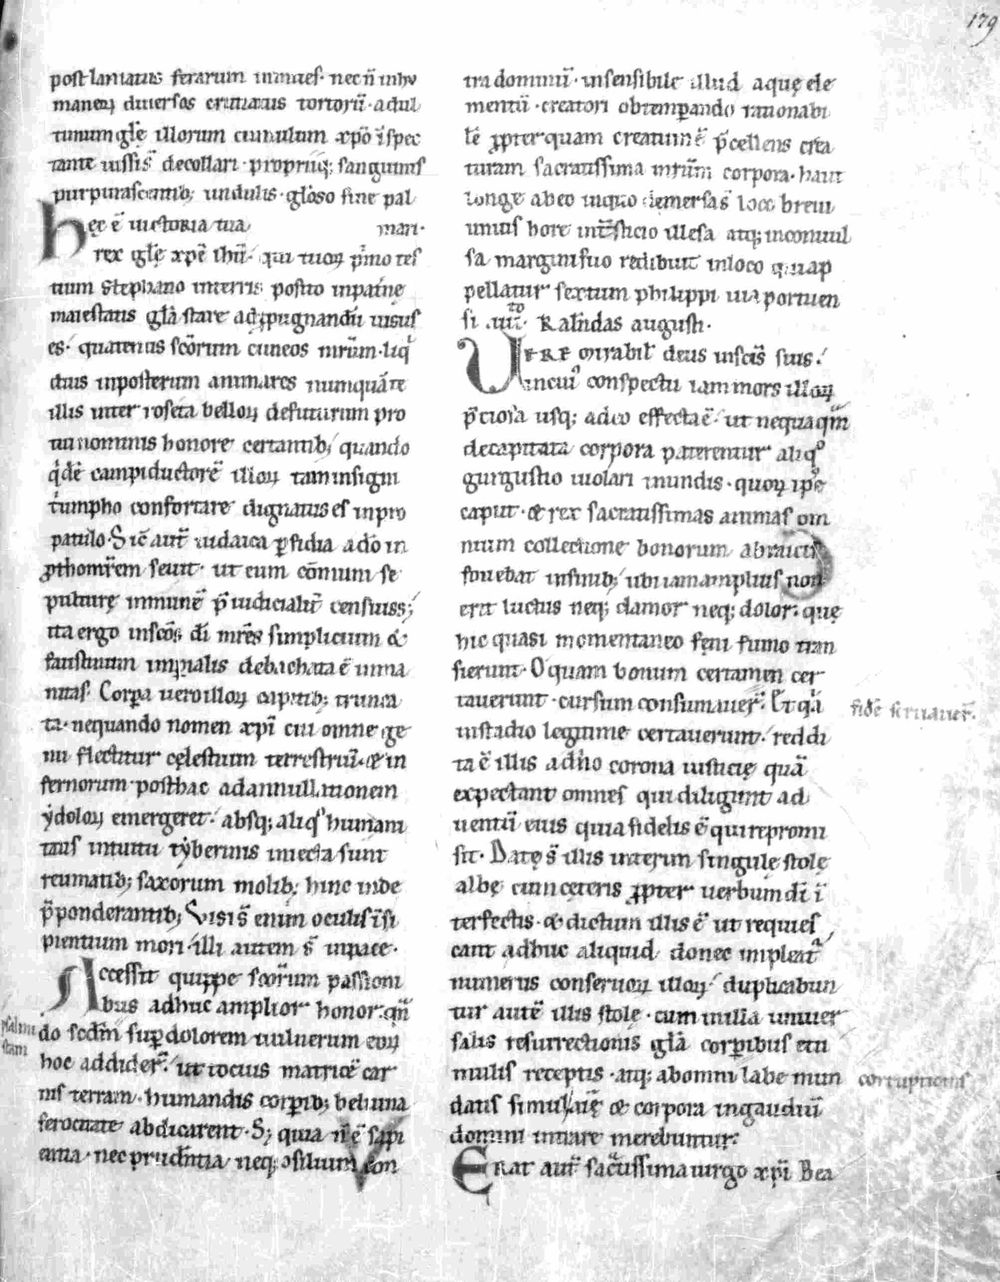 179
post laniatus ferarum inmites· nec ñ inhu
maneꝝ diuersos cruciatus tortorũ· adul
timum glẽ illorum cumulum xp̃o ĩspec
tante iussis decollari· propriiq; sanguinis
purpurascentib; undulis· gl̃oso fine pal
hec ẽ uictoria tua mari·
rex glẽ xp̃e ihũ· qui tuoꝝ p̃mo tes
tium Stephano interris posito inpat̃ne
maiestatis gl̃a stare adꝓpugnandũ uisus
es· quatenus sc̃orum cuneos mr̃um·
ctus inposterum animares numquã te
illis inter roseta belloꝝ defuturum pro
tui nominis honore certantib; quando
q̇dẽ campiductorẽ illoꝝ tam insigni
t̓umpho confortare dignatus es inpro
patulo· Sic aut̃ iudaica ꝑfidia ad̃o in
ꝓthomr̃em seuit· ut eum cõmuni se
pulturę inmunẽ p̃iudicialit̃ censuiss;
ita ergo insc̃os d̃i mr̃es simplicium &
faustinum imꝑialis debachata ẽ inma
nitas· Corꝑa uero illoꝝ capitib; trunca
ta· nequando nomen xp̃i cui omne ge
nu flectitur cęlestium terrestriũ· & in
fernorum· posthac adannullationem
ẏdoloꝝ emergeret· absq; humani
tatis intuitu tẏberinis iniecta sunt
reumatib; saxorum molib; hinc inde
p̃ponderantib; Visi s̃ enim oculis ĩsi
pientium mori· illi autem s̃ inpace·
Accessit quippe sc̃orum passioni
bus adhuc amplior honor· qñ
psalmi do scdm̃ suꝑ dolorem uulnerum eoꝝ
stam hoc addider̃· ut tocius matricẽ car
nis terram· humandis corꝑib; beluina
ferocitate abdicarent· S; quia ñ ẽ sapi
entia· nec prudentia neq; cõsilium con
tra dominũ· insensibile illud aquę ele
mentũ· creatori obtemꝑando rationabi
lẽ ꝓpter quam creatũ ẽ p̃cellens crea
turam sacratissima mr̃um corpora· haut
longe abeo inquo demersa s̃ loco breui
unius hore int̃sticio illesa atq; inconuul
sa margini suo redibuit inloco qui ap
pellatur sextum philippi uia portuen
si· .iiii.to Kalendas augusti·
Vere mirabil̃ deus insc̃is suis·
incui̓ conspectu iam mors illoꝝ
p̃ciosa usq; adeo effecta ẽ· ut nequaqm̃
decapitata corpora paterentur aliq̊
gurgustio uiolari inmundis· quoꝝ ip̃e
caput· & rex sacratissimas animas om
nium collectione bonorum abraicis
fouebat insinib; ubi iam amplius non
erit luctus neq; clamor neq; dolor· que
hic quasi momentaneo feni fumo tran
sierunt· O quam bonum certamen cer
tauerunt· cursum consumauer̃· Et q̃a fidẽ seruauer̃·
instadio legitime certauerunt· reddi
ta ẽ illis adño corona iusticię quã
expectant omnes qui diligunt ad
uentũ eius quia fidelis ẽ qui repromi
sit· Datę s̃ illis interim singulę stolę
albę cum cęteris ꝓpter uerbum d̃i ĩ
terfectis· & dictum illis ẽ ut requies
cant adhuc aliquid donec impleat̃
numerus conseruoꝝ illoꝝ· duplicabun
tur autẽ illis stole· cum in illa uniuer
salis resurrectionis gl̃a corꝑibus etu
mulis receptis· atq; abomni labe mun corruptionis
datis simul aĩę & corpora ingaudiũ
domini intrare merebuntur·
Erat aut̃ sacr̃issima uirgo xp̃i Bea